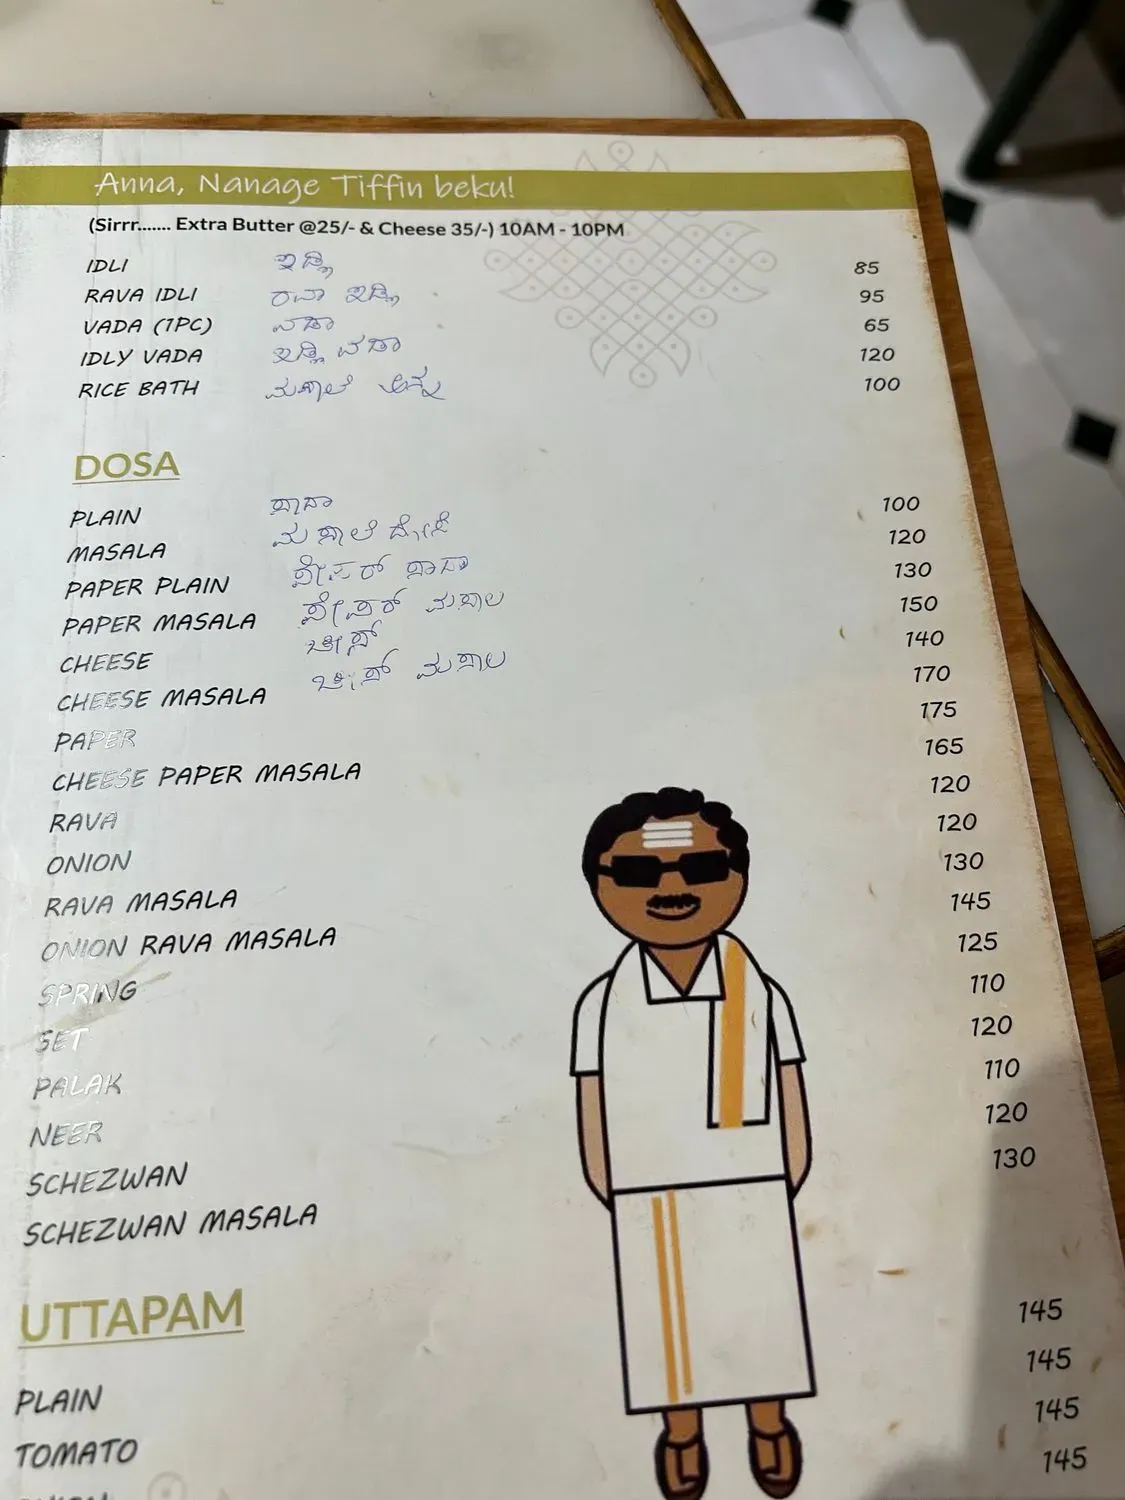 Anna, Nanage Tiffin beku!
(Sirrr....... Extra Butter @25/- & Cheese 35/-) 10AM - 10PM
IDLI ಇಡ್ಲಿ 85
RAVA IDLI ರವಾ ಇಡ್ಲಿ 95
VADA (1PC) ವಡಾ 65
IDLY VADA ಇಡ್ಲಿ ವಡಾ 120
RICE BATH ಮಸಾಲೆ ಅನ್ನ 100
DOSA
PLAIN ಸಾದಾ 100
MASALA ಮಸಾಲೆ ದೋಸೆ 120
PAPER PLAIN ಪೇಪರ್ ಸಾದಾ 130
PAPER MASALA ಪೇಪರ್ ಮಸಾಲ 150
CHEESE ಚೀಸ್ 140
CHEESE MASALA ಚೀಸ್ ಮಸಾಲ 170
PAPER 175
CHEESE PAPER MASALA 165
RAVA 120
ONION 120
RAVA MASALA 130
ONION RAVA MASALA 145
SPRING 125
SET 110
PALAK 120
NEER 110
SCHEZWAN 120
SCHEZWAN MASALA 130
UTTAPAM
PLAIN 145
TOMATO 145
145
145